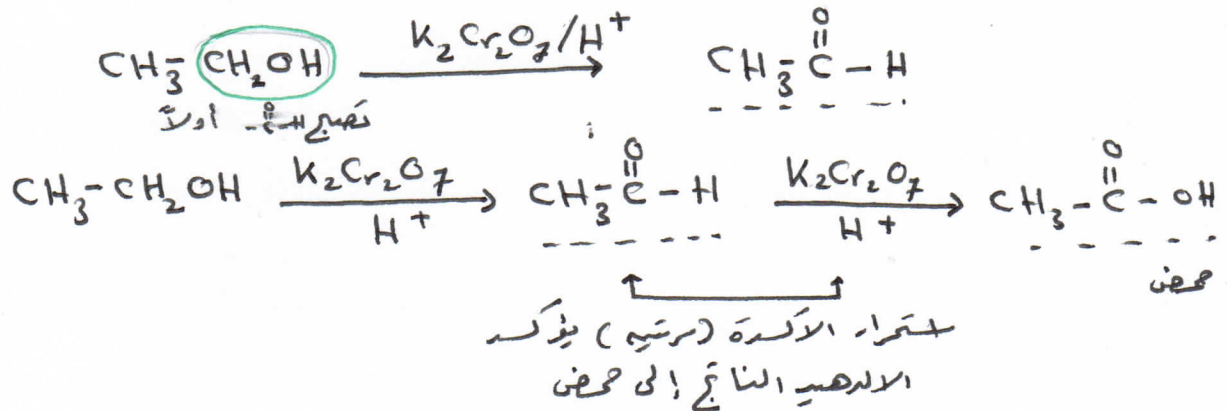 CH₃-CH₂OH K₂Cr₂O₇/H⁺ → CH₃-C(=O)-H
تصبح -C(=O)-H أولاً
CH₃-CH₂OH K₂Cr₂O₇ / H⁺ → CH₃-C(=O)-H K₂Cr₂O₇ / H⁺ → CH₃-C(=O)-OH
حمض
استمرار الأكسدة (مرتين) يؤكسد
الالدهيد الناتج إلى حمض